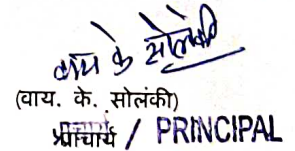 वाय के सोलंकी
(वाय. के. सोलंकी)
प्राचार्य / PRINCIPAL